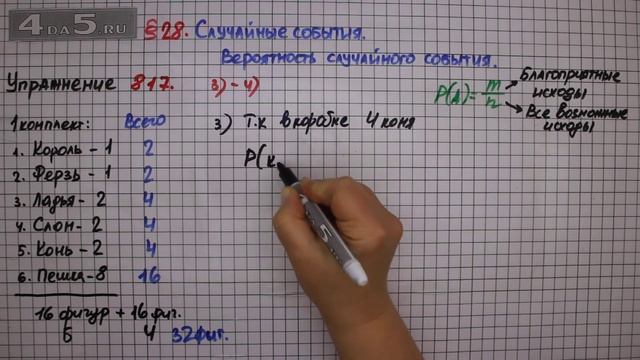 4DA5.RU
§28. Случайные события.
Вероятность случайного события.
Упражнение 817. 3)-4)
P(A)=m/n
Благоприятные
исходы
Все возможные
исходы
1 комплект: Всего
1. Король - 1 2
2. Ферзь - 1 2
3. Ладья - 2 4
4. Слон - 2 4
5. Конь - 2 4
6. Пешка - 8 16
16 фигур + 16 фиг.
Б Ч 32 фиг.
3) Т.к в коробке 4 коня
P(к